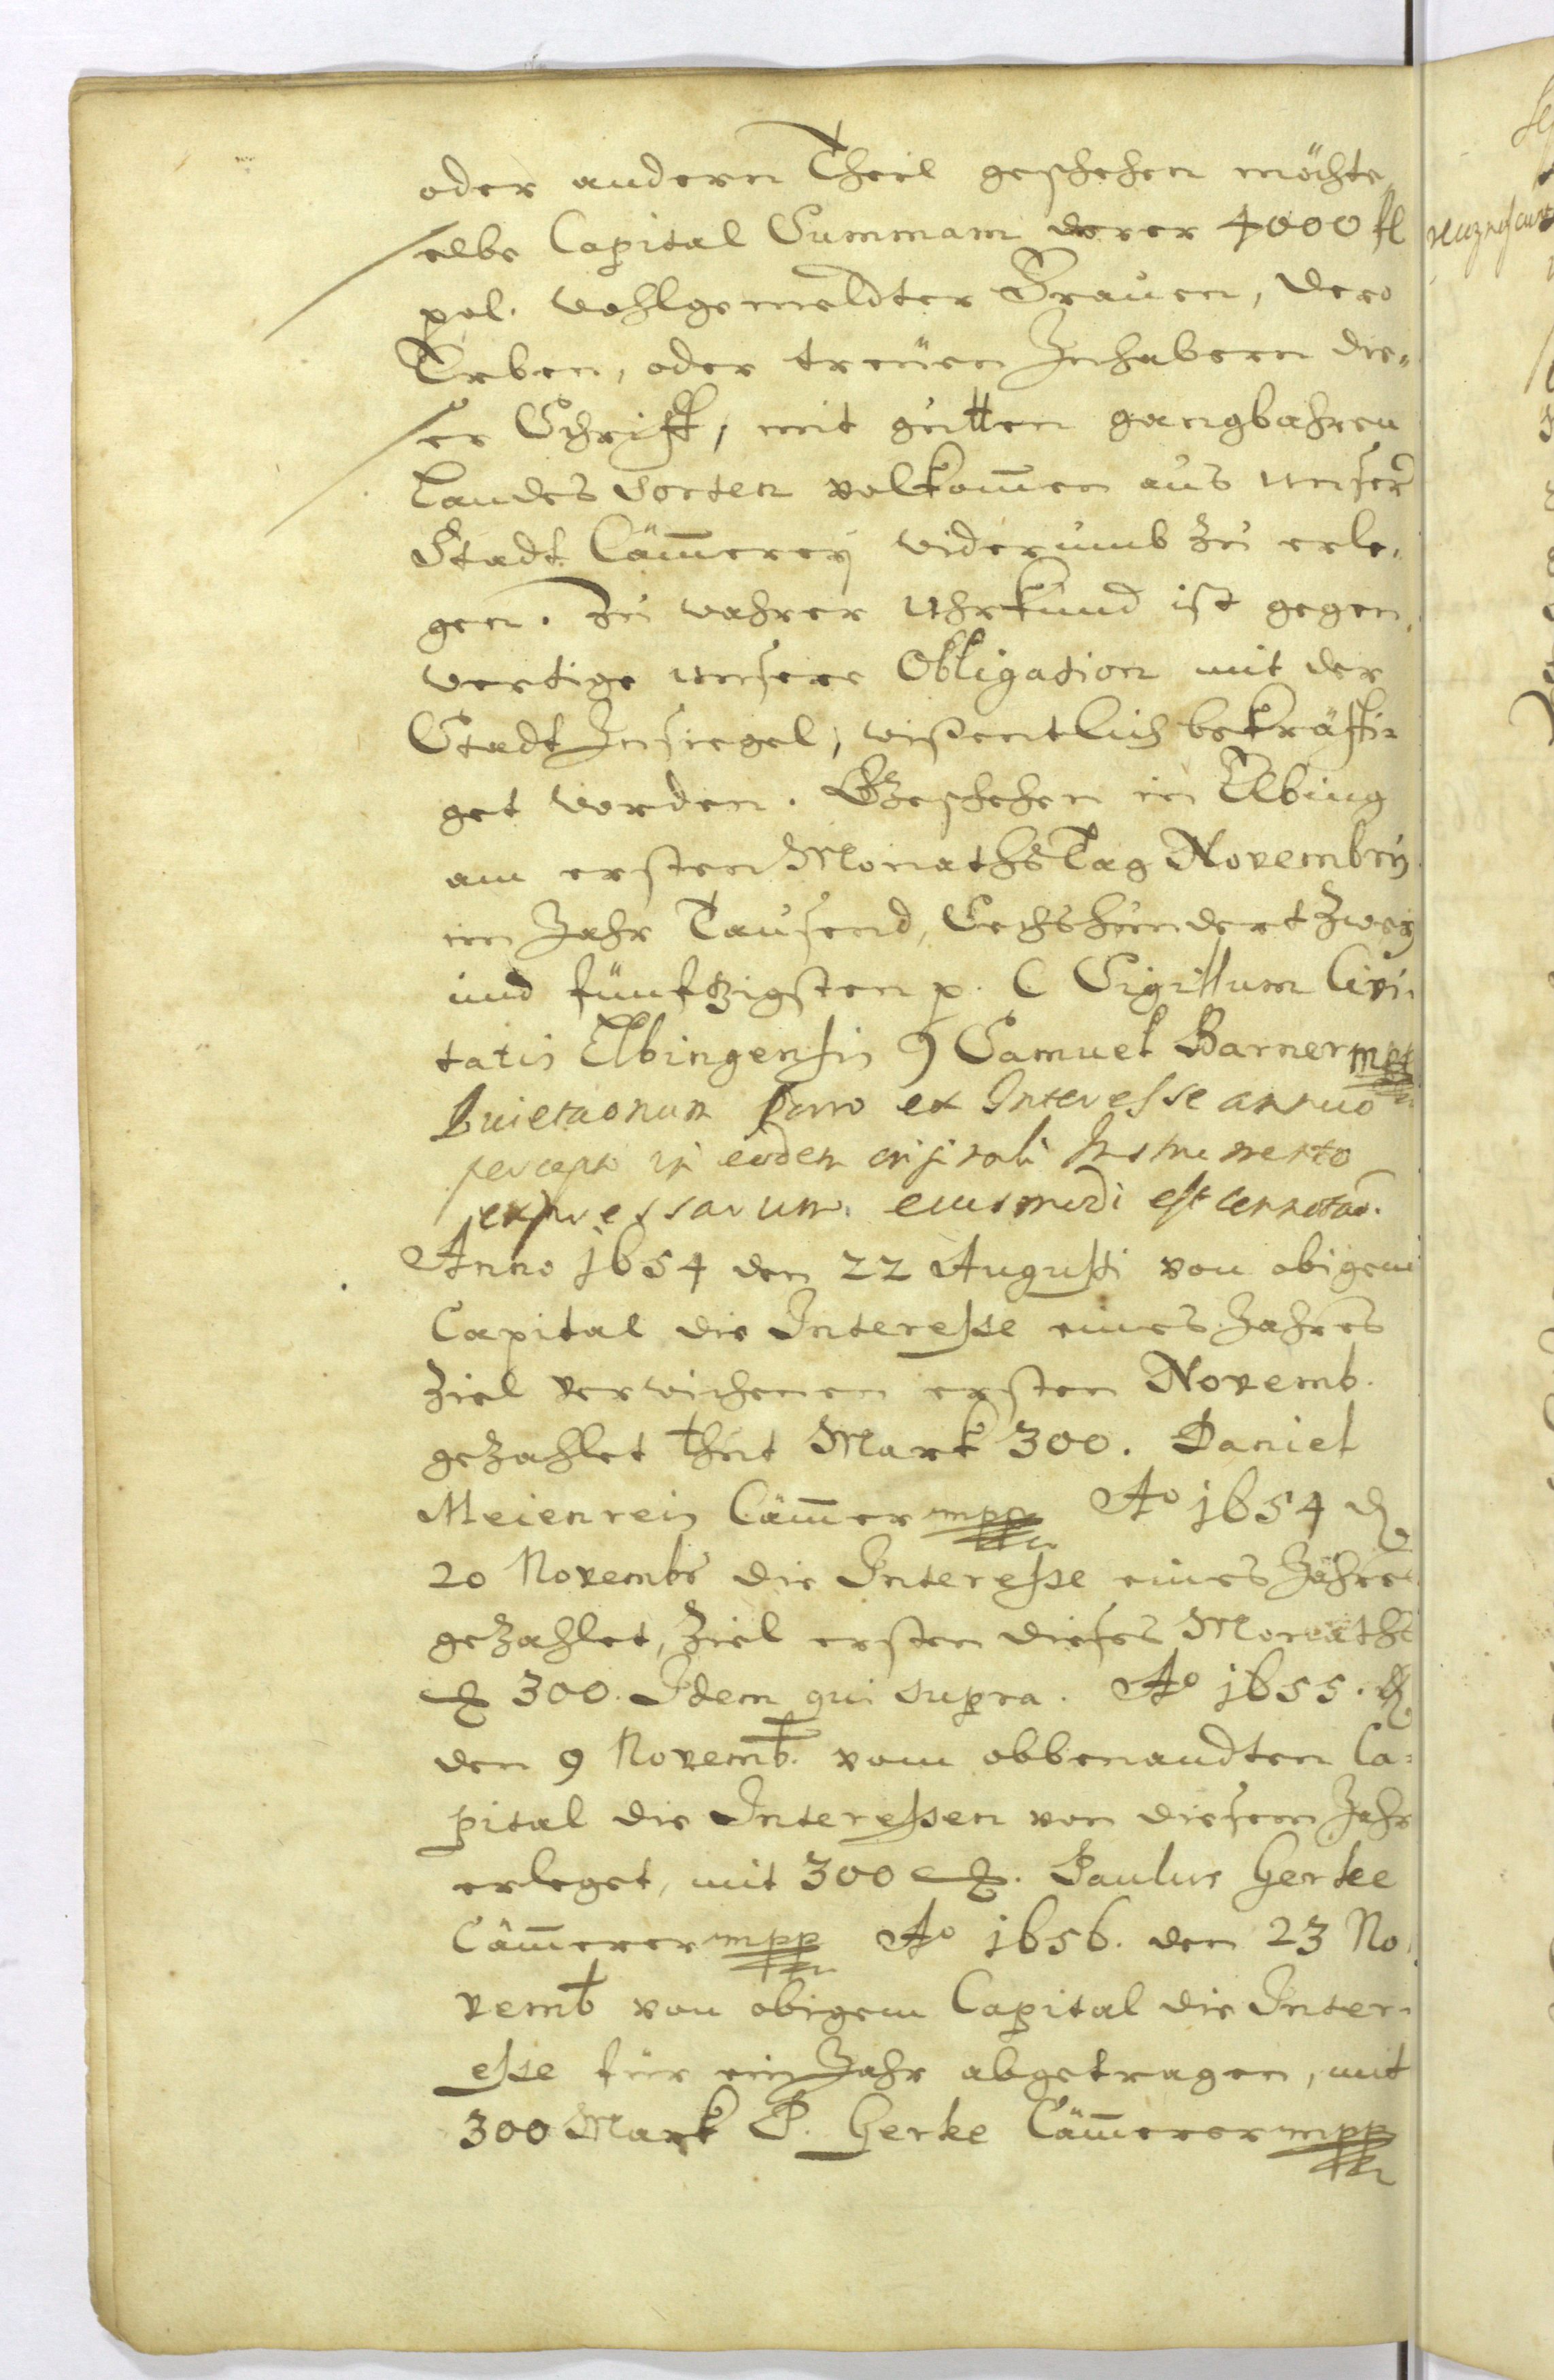 oder andern Theil geschehen möchte
selbe Capital Summam derer 4000 fl
pol. wohlgemeldter Frauen, dero
Erben, oder treüen Inhabern die„
ser Schrifft, mit gutten gangbahren
Landes Sorten volkom̄en aus unser
Stadt Cäm̄erey widerumb zu erle„
gen. Zu wahrer Uhrkund ist gegen„
wertige unsere Obligation mit der
Stadt Insiegel, wißentlich bekräffti„
get worden. Geschehen in Elbing
am ersten Monaths Tag Novembris
im Jahr Tausend, Sechshundert Zwey
und funftzigsten p. ( Sigillum Civi„
tatis Elbingensis ) Samuel Barner mpp
Quietaonum porro ex Interesse annuo
percepto in eodem originali Instrumento
expressarum. eiusmodi est connotaō.
Anno 1654 den 22 Augusti von obigem
Capital die Interesse eines Jahres
Ziel verwichenen ersten Novemb.
gezahlet thut Mark 300. Daniel
Meienreis Cäm̄er mpp Ao 1654 d
20 Novembr die Interesse eines Jahres
gezahlet, Ziel ersten dieses Monaths
300. Idem qui supra. Ao 1655.
den 9 Novemb. vom obbenandten Ca„
pital die Interessen von diesem Jahr
erleget, mit 300. Paulus Gerke
Cäm̄erer mpp Ao 1656. den 23 No„
vemb von obigem Capital die Inter„
esse für ein Jahr abgetragen, mit
300 Mark P. Gerke Cäm̄erer mpp